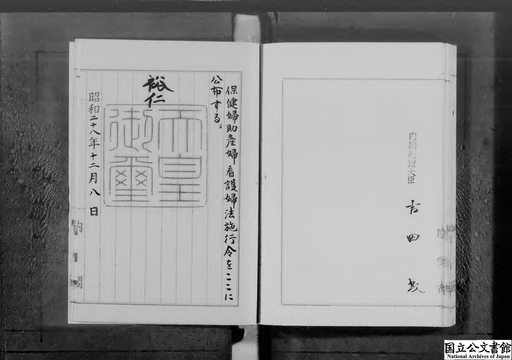 保健婦助産婦看護婦法施行令をここに
公布する。
裕仁
天皇
御璽
昭和二十八年十二月八日
内閣総理大臣
吉田茂
国立公文書館
National Archives of Japan